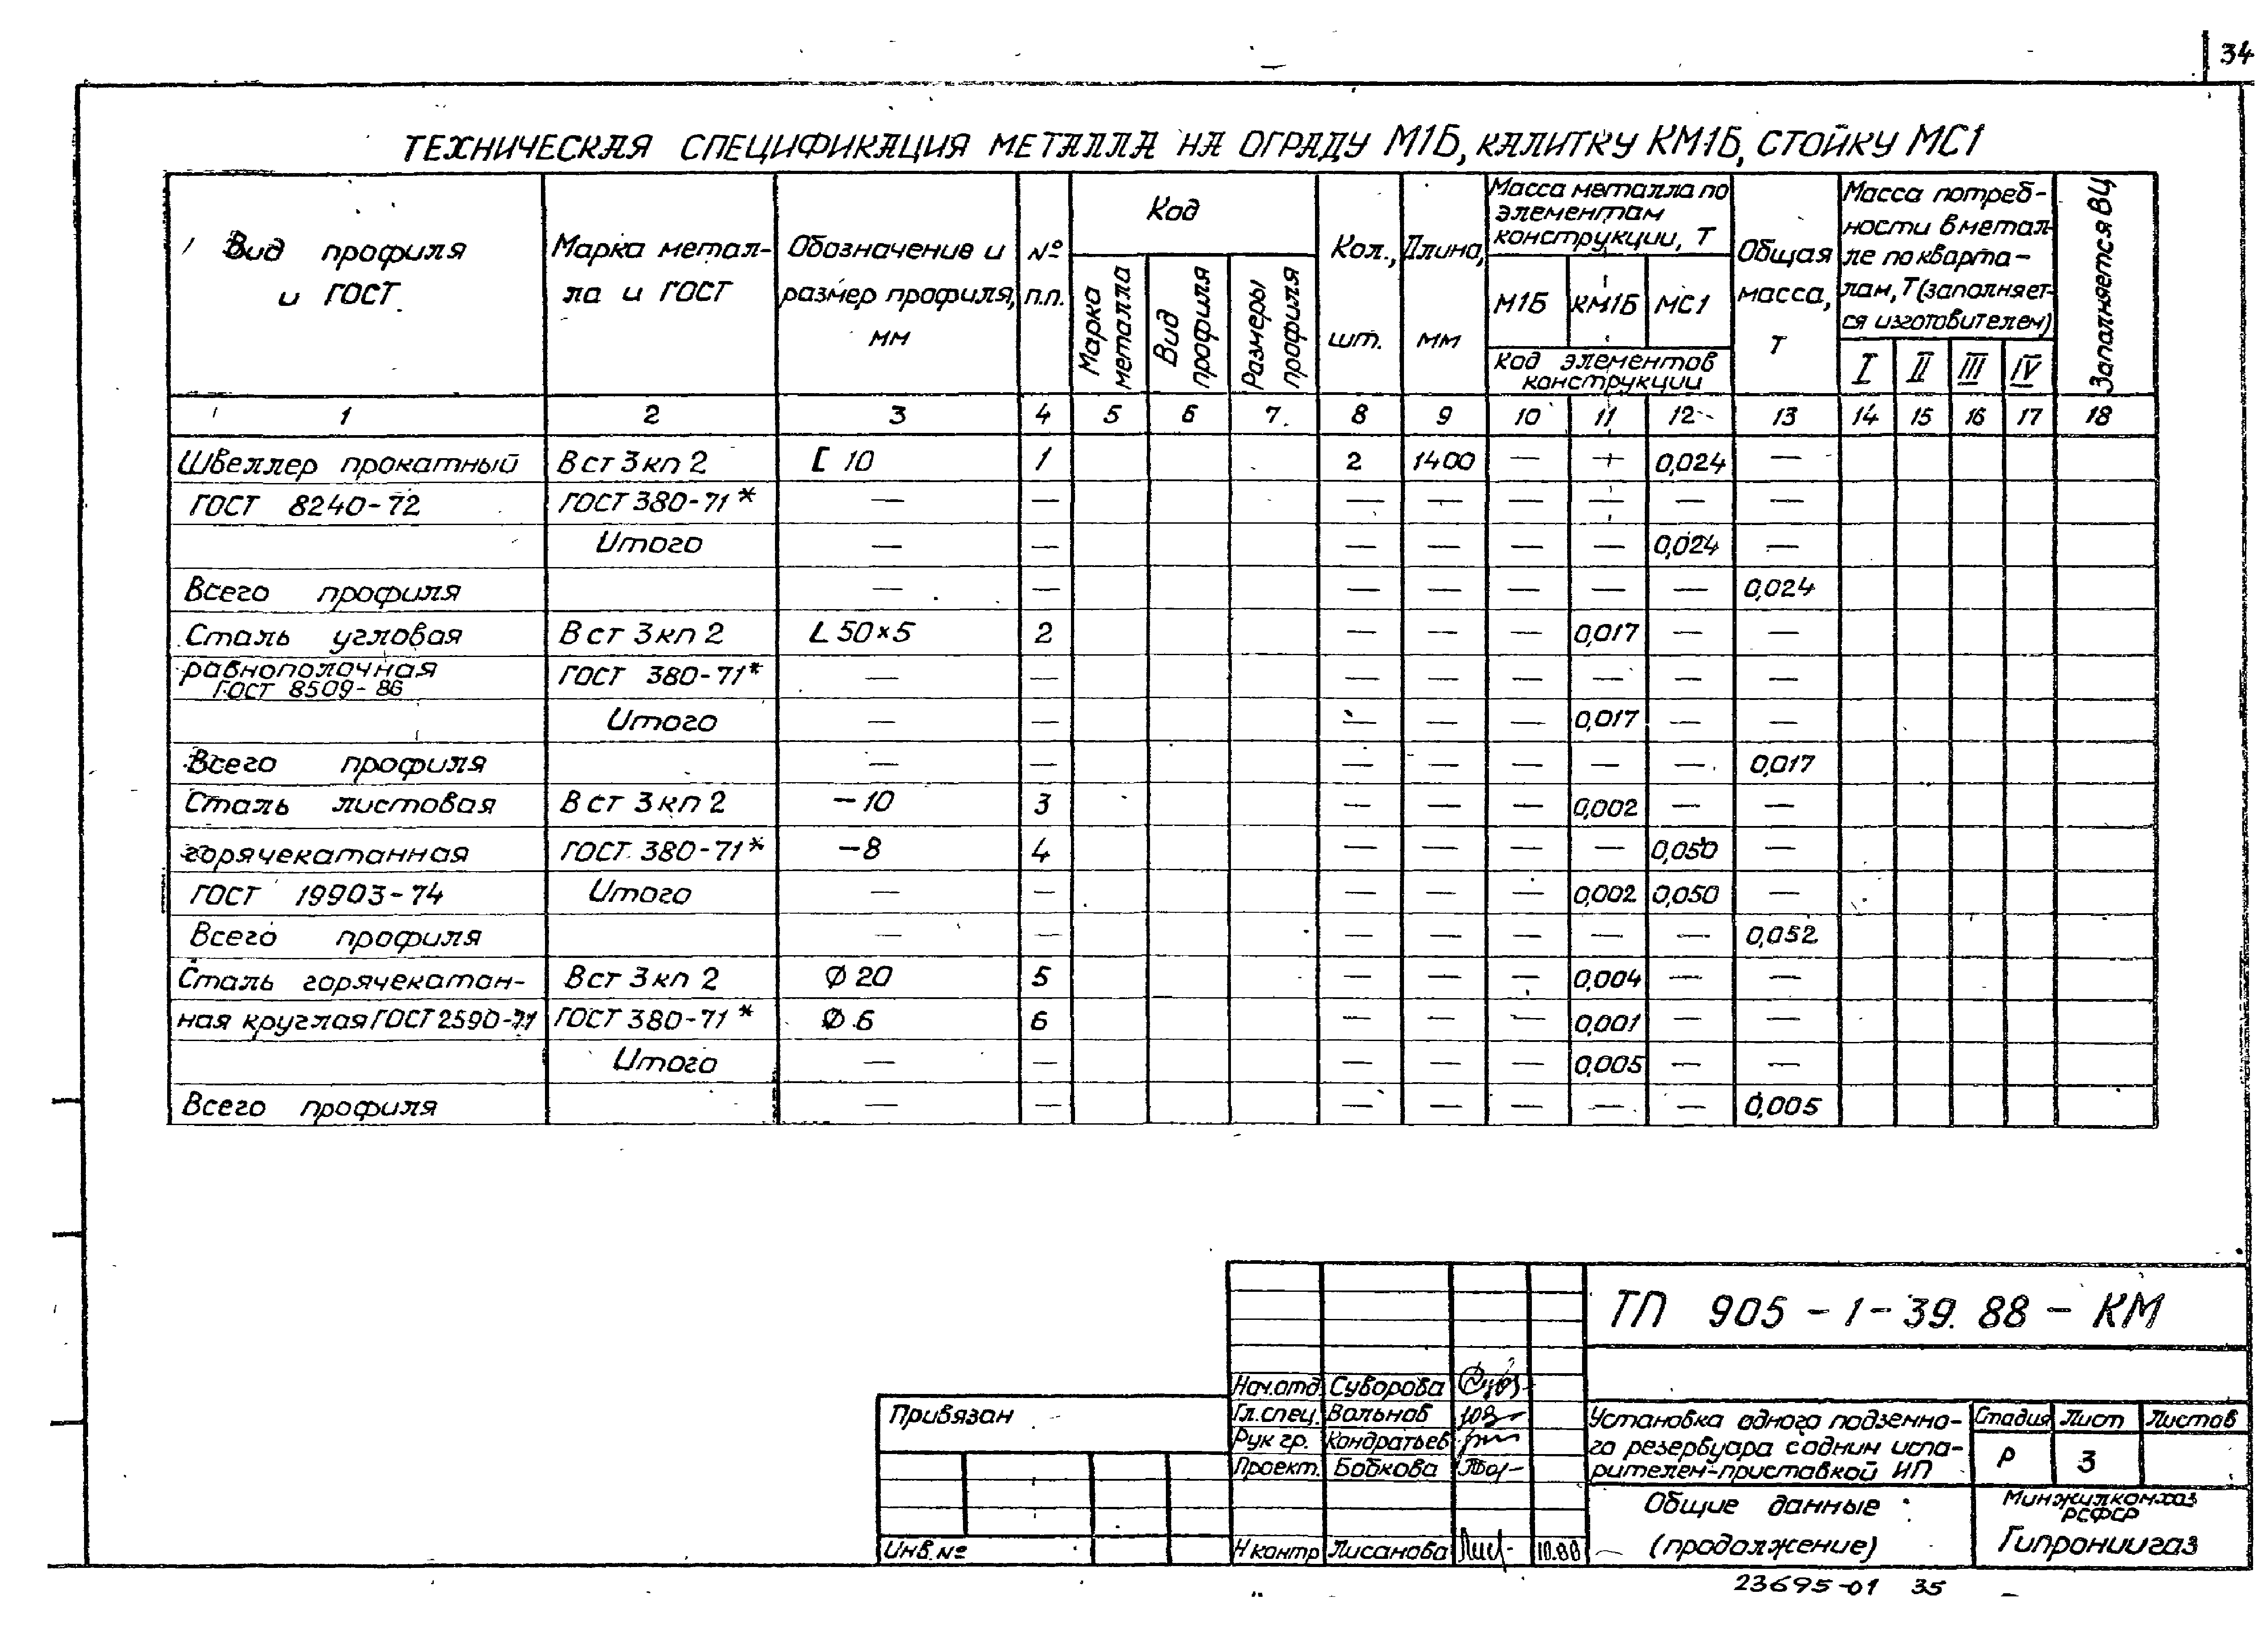 34
ТЕХНИЧЕСКАЯ СПЕЦИФИКАЦИЯ МЕТАЛЛА НА ОГРАДУ М1Б, КАЛИТКУ КМ1Б, СТОЙКУ МС1
Вид профиля и ГОСТ
Марка метал-
ла и ГОСТ
Обозначение и
размер профиля,
мм
№
п.п.
Код
Марка металла
Вид профиля
Размеры профиля
Кол.,
шт.
Длина,
мм
Масса металла по
элементам
конструкции, Т
М1Б КМ1Б МС1
Код элементов
конструкции
Общая
масса,
Т
Масса потреб-
ности в метал-
ле по кварта-
лам, Т (заполняет-
ся изготовителем)
I II III IV
Заполняется ВЦ
1 2 3 4 5 6 7 8 9 10 11 12 13 14 15 16 17 18
Швеллер прокатный В ст 3 кп 2 [ 10 1 2 1400 — — 0,024 —
ГОСТ 8240-72 ГОСТ 380-71* — — — — — — — —
Итого — — — — — — 0,024 —
Всего профиля — — — — — — — 0,024
Сталь угловая В ст 3 кп 2 L 50×5 2 — — — 0,017 — —
равнополочная
ГОСТ 8509-86 ГОСТ 380-71* — — — — — — — —
Итого — — — — — 0,017 — —
Всего профиля — — — — — — — 0,017
Сталь листовая В ст 3 кп 2 —10 3 — — — 0,002 — —
горячекатанная ГОСТ 380-71* —8 4 — — — — 0,050 —
ГОСТ 19903-74 Итого — — — — — 0,002 0,050 —
Всего профиля — — — — — — — 0,052
Сталь горячекатан- В ст 3 кп 2 Ø 20 5 — — — 0,004 — —
ная круглая ГОСТ 2590-71 ГОСТ 380-71* Ø 6 6 — — — 0,001 — —
Итого — — — — — 0,005 — —
Всего профиля — — — — — — — 0,005
ТП 905-1-39.88-КМ
Привязан
Инв.№
Нач.отд. Суворова
Гл.спец. Вольнов
Рук гр. Кондратьев
Проект. Бобкова
Н контр Лисанова 10.88
Установка одного подземно-
го резервуара с одним испа-
рителем-приставкой ИП
Стадия Лист Листов
Р 3
Общие данные
(продолжение)
Минжилкомхоз
РСФСР
Гипрониигаз
23695-01 35